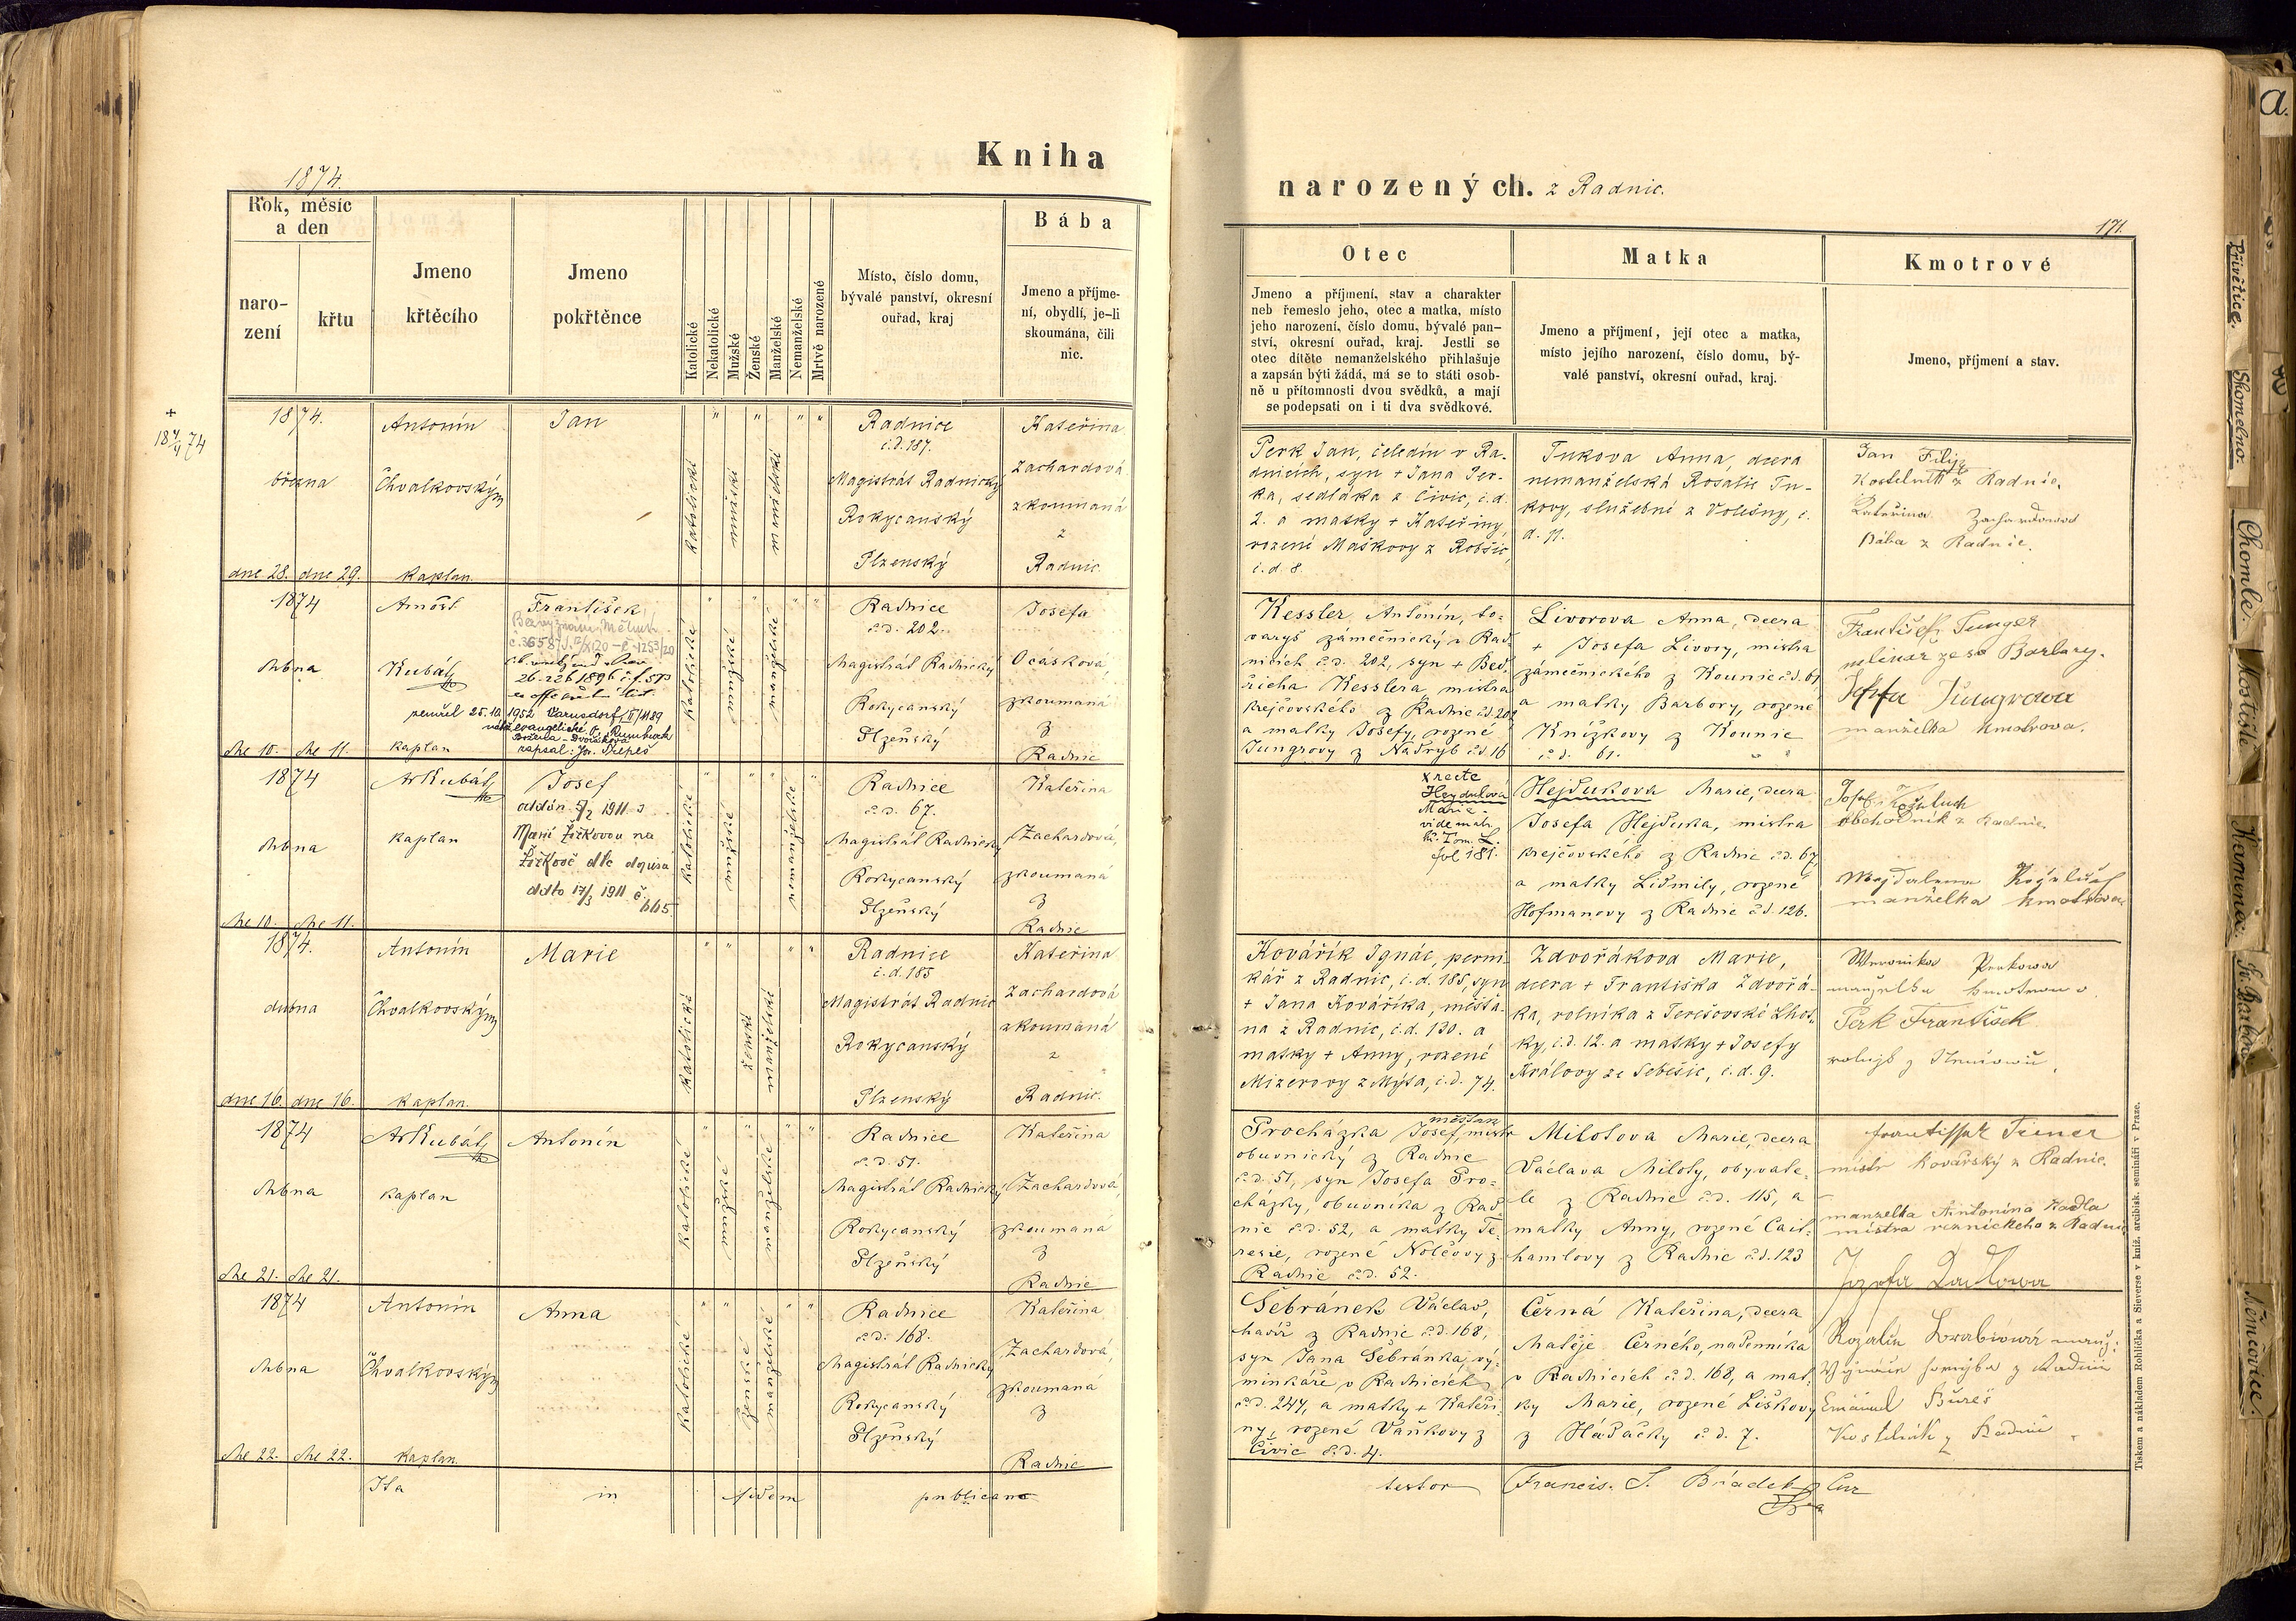 Kniha
1874.
Rok, měsíc
a den
naro-
zení
křtu
Jmeno
křtěcího
Jmeno
pokřtěnce
Katolické
Nekatolické
Mužské
Ženské
Manželské
Nemanželské
Mrtvě narozené
Místo, číslo domu,
bývalé panství, okresní
ouřad, kraj
Bába
Jmeno a příjme-
ní, obydlí, je-li
skoumána, čili
nic.
narozených. z Radnic.
171.
Otec
Jmeno a příjmení, stav a charakter
neb řemeslo jeho, otec a matka, místo
jeho narození, číslo domu, bývalé pan-
ství, okresní ouřad, kraj. Jestli se
otec dítěte nemanželského přihlašuje
a zapsán býti žádá, má se to státi osob-
ně u přítomnosti dvou svědků, a mají
se podepsati on i ti dva svědkové.
Matka
Jmeno a příjmení, její otec a matka,
místo jejího narození, číslo domu, bý-
valé panství, okresní ouřad, kraj.
Kmotrové
Jmeno, příjmení a stav.
+
18 4/4 74
1874.
března
dne 28. dne 29.
Antonín
Chvalkovský
kaplan.
Jan
katolické
mužské
manželské
Radnice
č.d. 187.
Magistrát Radnický
Rokycanský
Plzenský
Kateřina
Zachardová
zkoumaná
z
Radnic.
Perk Jan, čeledín v Ra-
dnicích, syn + Jana Per-
ka, sedláka z Čivic, č.d.
2. a matky + Kateřiny
rozené Maškovy z
č.d. 8.
Tukova Anna, dcera
nemanželská Rosalie Tu-
kovy, služební z Volešny, č.
d. 11.
Jan Filip
Kostelník z Radnic.
Kateřina Zachardowa
Bába z Radnic.
1874
dubna
dne 10. dne 11.
Arnošt
Kubát
kaplan
František
26 1896
zemřel 25.10.1952 Varnsdorf, II/1189
evangelické Rumburk
Dvořáková
zapsal: Jar. Třepeš
katolické
mužské
manželské
Radnice
č.d. 202.
Magistrát Radnický
Rokycanský
Plzeňský
Josefa
Ocásková,
zkoumaná
z
Radnic
Kessler Antonín, to-
varyš zámečnický v Rad-
nicích č.d. 202, syn + Bed-
řicha Kesslera, mistra
krejčovského z Radnic č.d. 202
a matky Josefy, rozené
Jungrovy z Nadryb č.d. 16
Livorova Anna, dcera
+ Josefa Livory, mistra
zámečnického z Kounic č.d. 61,
a matky Barbory, rozené
Knížkovy z Kounic
č.d. 61.
František Junger
mlinar ze sv Barbory.
Josefa Jungrowa
manželka kmotrova.
1874
dubna
dne 10. dne 11.
Ar Kubát
kaplan
Josef
oddán 5/2 1911 s
Marií Žižkovou na
Žižkově dle dopisu
ddto 17/3 1911 č.
665
katolické
mužské
nemanželské
Radnice
č.d. 67.
Magistrát Radnický
Rokycanský
Plzeňský
Kateřina
Zachardová,
zkoumaná
z
Radnic
x recte
Hejduková
Marie
vide matr.
Tom. L.
fol 181.
Hejdukova Marie, dcera
Josefa Hejduka, mistra
krejčovského z Radnic č.d. 67
a matky Lidmily, rozené
Hofmanovy z Radnic č.d. 126.
Josef
obchodník z Radnic.
Majdalena
manželka kmotrova
1874.
dubna
dne 16. dne 16.
Antonín
Chvalkovský
kaplan.
Marie
katolické
ženské
manželské
Radnice
č.d. 185
Magistrát Radnic
Rokycanský
Plzenský
Kateřina
Zachardová
zkoumaná
z
Radnic.
Kovářík Ignác, perní-
kář z Radnic, č.d. 185, syn
+ Jana Kováříka, měšťa-
na z Radnic, č.d. 130. a
matky + Anny, rozené
Mizerovy z Mýta, č.d. 74.
Zdvořákova Marie,
dcera + Františka Zdvořá-
ka, rolníka z Terešovské Lhot-
ky, č.d. 12. a matky + Josefy
Královy ze Sebešic, č.d. 9.
Weronika Perkowa
manželka kmotrowa
Perk František
z
1874
dubna
dne 21. dne 21.
Ar Kubát
kaplan
Antonín
katolické
mužské
manželské
Radnice
č.d. 51.
Magistrát Radnický
Rokycanský
Plzeňský
Kateřina
Zachardová,
zkoumaná
z
Radnic
měšťan
Procházka Josef, mistr
obuvnický z Radnic
č.d. 51, syn Josefa Pro-
cházky, obuvníka z Rad-
nic č.d. 52, a matky Te-
rezie, rozené Nolčovy z
Radnic č.d. 52.
Milotova Marie, dcera
Václava Miloty, obyvate-
le z Radnic č.d. 115, a
matky Anny, rozené Cait-
hamlovy z Radnic č.d. 123
mistr kovářský z Radnic.
manzelka Antonina Kadla
mistra reznického z Radnic
1874
dubna
dne 22. dne 22.
Antonín
Chvalkovský
kaplan
Anna
katolické
ženské
manželské
Radnice
č.d. 168.
Magistrát Radnický
Rokycanský
Plzeňský
Kateřina
Zachardová,
zkoumaná
z
Radnic
Šebránek Václav,
havíř z Radnic č.d. 168,
syn Jana Šebránka, vý-
minkáře v Radnicích
č.d. 244, a matky + Kateři-
ny, rozené Vaňkovy z
Čivic č.d. 4.
Černá Kateřina, dcera
Matěje Černého, nádenníka
v Radnicích č.d. 168, a mat-
ky Marie, rozené Liškovy
z Hádačky č.d. 7.
Rozalie
z Radnic
Emanuel Bureš
Kostelník z Radnic
Ita in fidem publicam
testor Francis. S. Cur
Tiskem a nákladem Rohlíčka a Sieverse v kníž. arcibisk. semináři v Praze.
a.
Přívětice.
Skomelno.
Chomle.
Vostitě
Kamenec.
Sv. Barbora
Němčovice